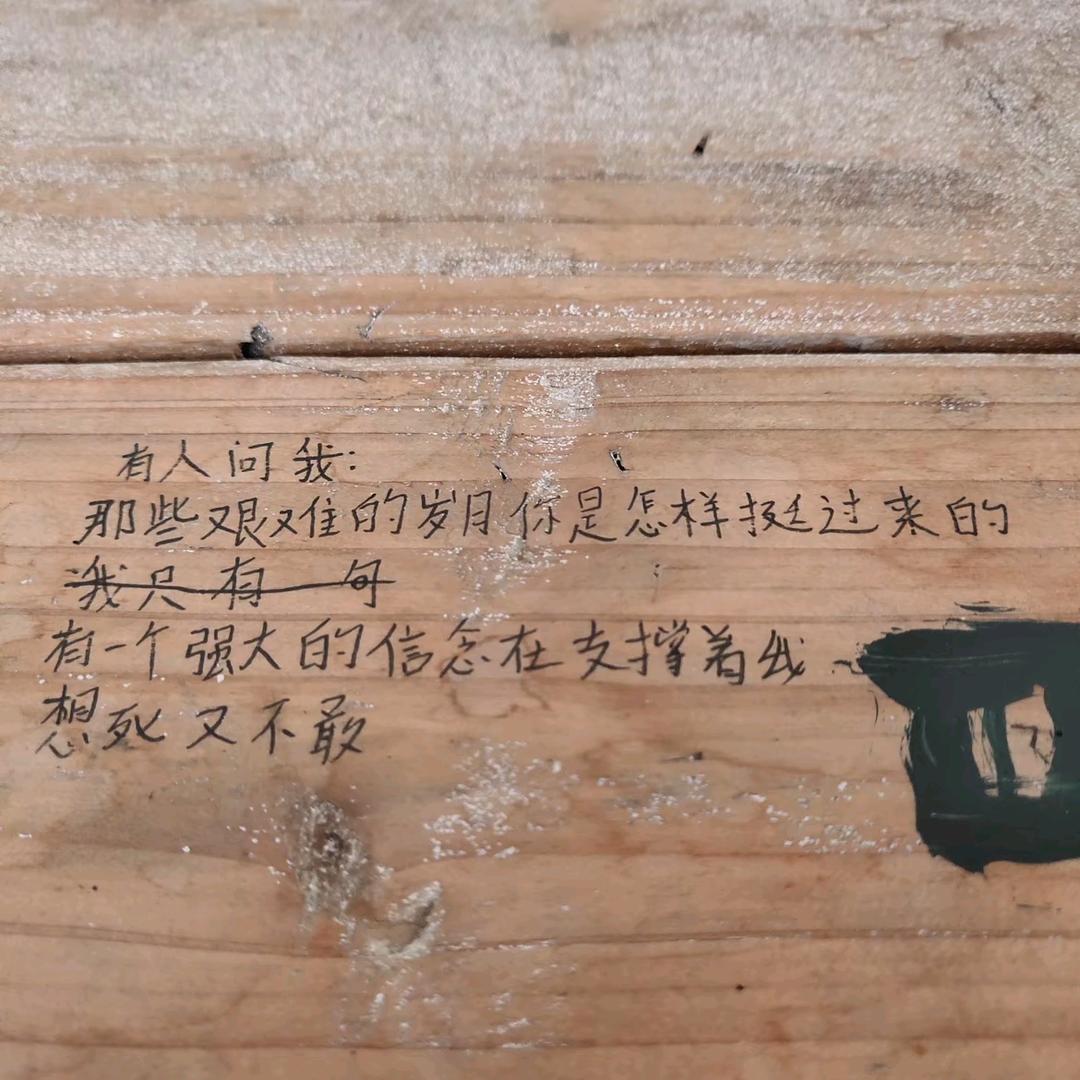 有人问我:
那些艰难的岁月你是怎样挺过来的
我只有一句
有一个强大的信念在支撑着我
想死又不敢